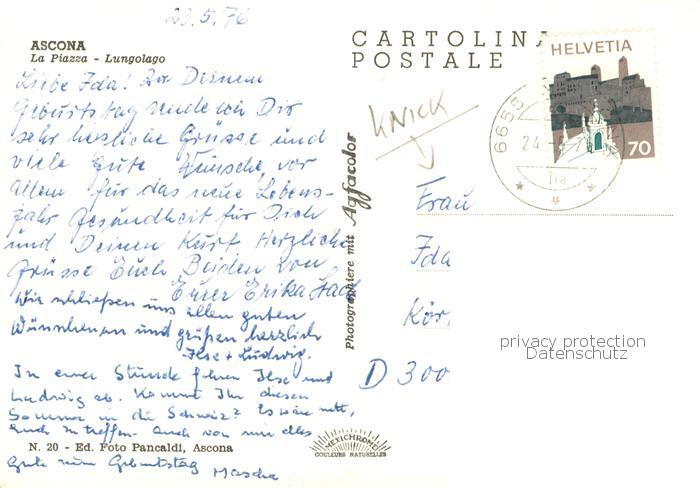 23.5.76
ASCONA
La Piazza - Lungolago
CARTOLINA
POSTALE
HELVETIA
70
6655
24
Liebe Ida! Zu Deinem
Geburtstag sende ich Dir
sehr herzliche Grüsse und
viele gute Wünsche, vor
Allem für das neue Lebens-
jahr Gesundheit für Dich
und Deinen Kurt Herzliche
Grüsse Euch Beiden von
Eurer Erika
Wir schließen uns allen guten
Wünschen an und grüßen herzlich
Ilse + Ludwig.
In einer Stunde fahren Ilse und
Ludwig ab. Kommt Ihr diesen
Sommer in die Schweiz? Es wäre nett,
Euch zu treffen. Auch von mir alles
Gute zum Geburtstag Mascha
N. 20 - Ed. Foto Pancaldi, Ascona
Photographiere mit Agfacolor
KNICK
Frau
Ida
Kör
D 300
privacy protection
Datenschutz
MEXICHROME
COULEURS NATURELLES